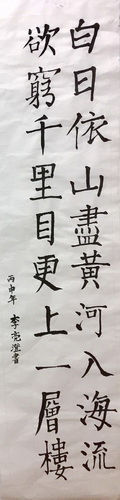 白日依山盡黃河入海流
欲窮千里目更上一層樓
丙申年 李亮澄書